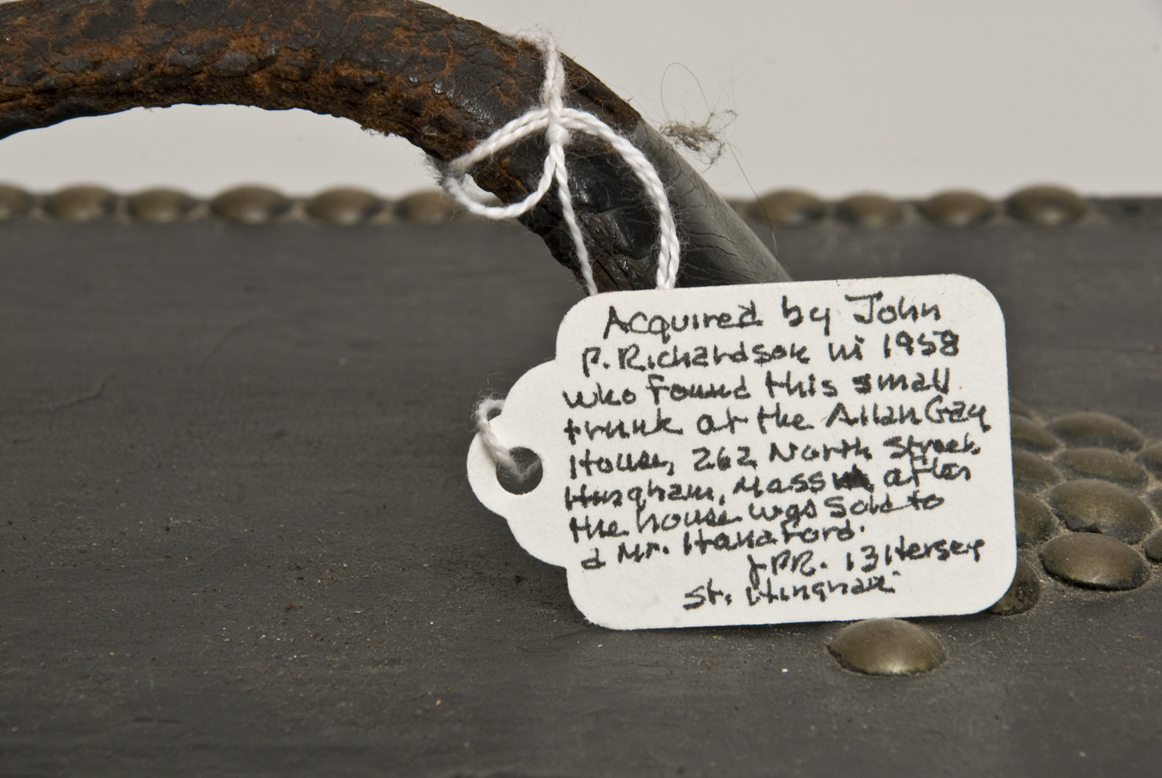 Acquired by John
P. Richardson in 1958
who found this small
trunk at the Allan Gay
House, 262 North Street,
Hingham, Mass after
the house was sold to
a Mr. Hanaford.
JPR. 13 Hersey
St. Hingham